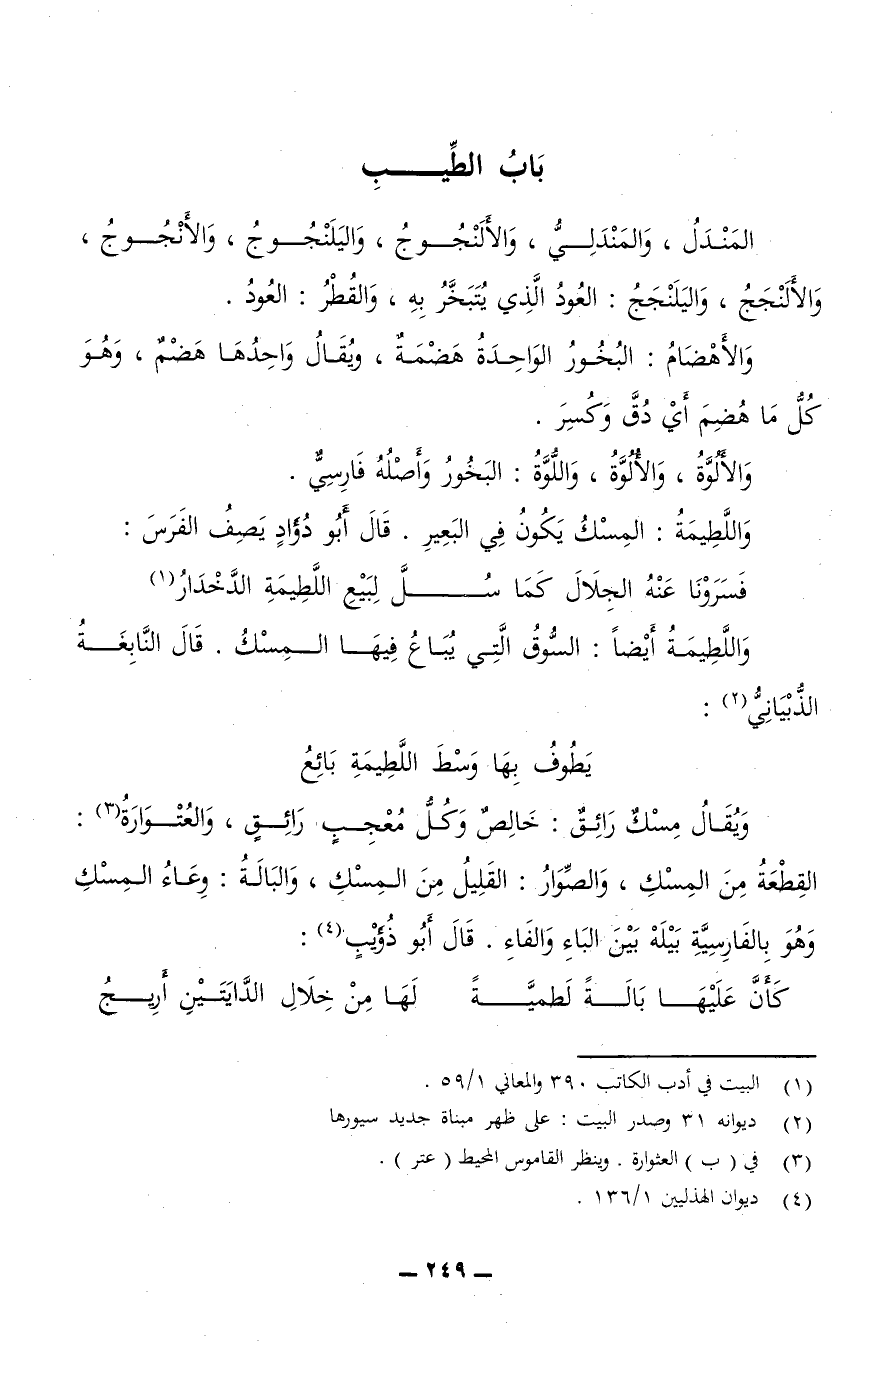 بَابُ الطِّيبِ
المَنْدَلُ ، وَالمَنْدَلِيُّ ، وَالأَلَنْجُوجُ ، وَاليَلَنْجُوجُ ، وَالأَنْجُوجُ ،
وَالأَلَنْجَجُ ، وَاليَلَنْجَجُ : العُودُ الَّذِي يُتَبَخَّرُ بِهِ ، وَالقُطْرُ : العُودُ .
وَالأَهْضَامُ : البُخُورُ الوَاحِدَةُ هَضْمَةٌ ، وَيُقَالُ وَاحِدُهَا هَضْمٌ ، وَهُوَ
كُلُّ مَا هُضِمَ أَيْ دُقَّ وَكُسِرَ .
وَالأَلُوَّةُ ، وَالأُلُوَّةُ ، وَاللُّوَّةُ : البَخُورُ وَأَصْلُهُ فَارِسِيٌّ .
وَاللَّطِيمَةُ : المِسْكُ يَكُونُ فِي البَعِيرِ . قَالَ أَبُو دُؤَادٍ يَصِفُ الفَرَسَ :
فَسَرَوْنَا عَنْهُ الجِلَالَ كَمَا سُلَّ لِبَيْعِ اللَّطِيمَةِ الدَّخْدَارُ(١)
وَاللَّطِيمَةُ أَيْضاً : السُّوقُ الَّتِي يُبَاعُ فِيهَا المِسْكُ . قَالَ النَّابِغَةُ
الذُّبْيَانِيُّ(٢) :
يَطُوفُ بِهَا وَسْطَ اللَّطِيمَةِ بَائِعُ
وَيُقَالُ مِسْكٌ رَائِقٌ : خَالِصٌ وَكُلُّ مُعْجِبٍ رَائِقٍ ، وَالعُتْوَارَةُ(٣) :
القِطْعَةُ مِنَ المِسْكِ ، وَالصِّوَارُ : القَلِيلُ مِنَ المِسْكِ ، وَالبَالَةُ : وِعَاءُ المِسْكِ
وَهُوَ بِالفَارِسِيَّةِ بَيْلَهْ بَيْنَ البَاءِ وَالفَاءِ . قَالَ أَبُو ذُؤَيْبٍ(٤) :
كَأَنَّ عَلَيْهَا بَالَةً لَطَمِيَّةً لَهَا مِنْ خِلَالِ الدَّايَتَيْنِ أَرِيجُ
(١) البيت في أدب الكاتب ٣٩٠ والمعاني ٥٩/١ .
(٢) ديوانه ٣١ وصدر البيت : على ظهر مبناة جديد سيورها
(٣) في ( ب ) العثوارة . وينظر القاموس المحيط ( عتر ) .
(٤) ديوان الهذليين ١٣٦/١ .
ــ ٢٤٩ ــ